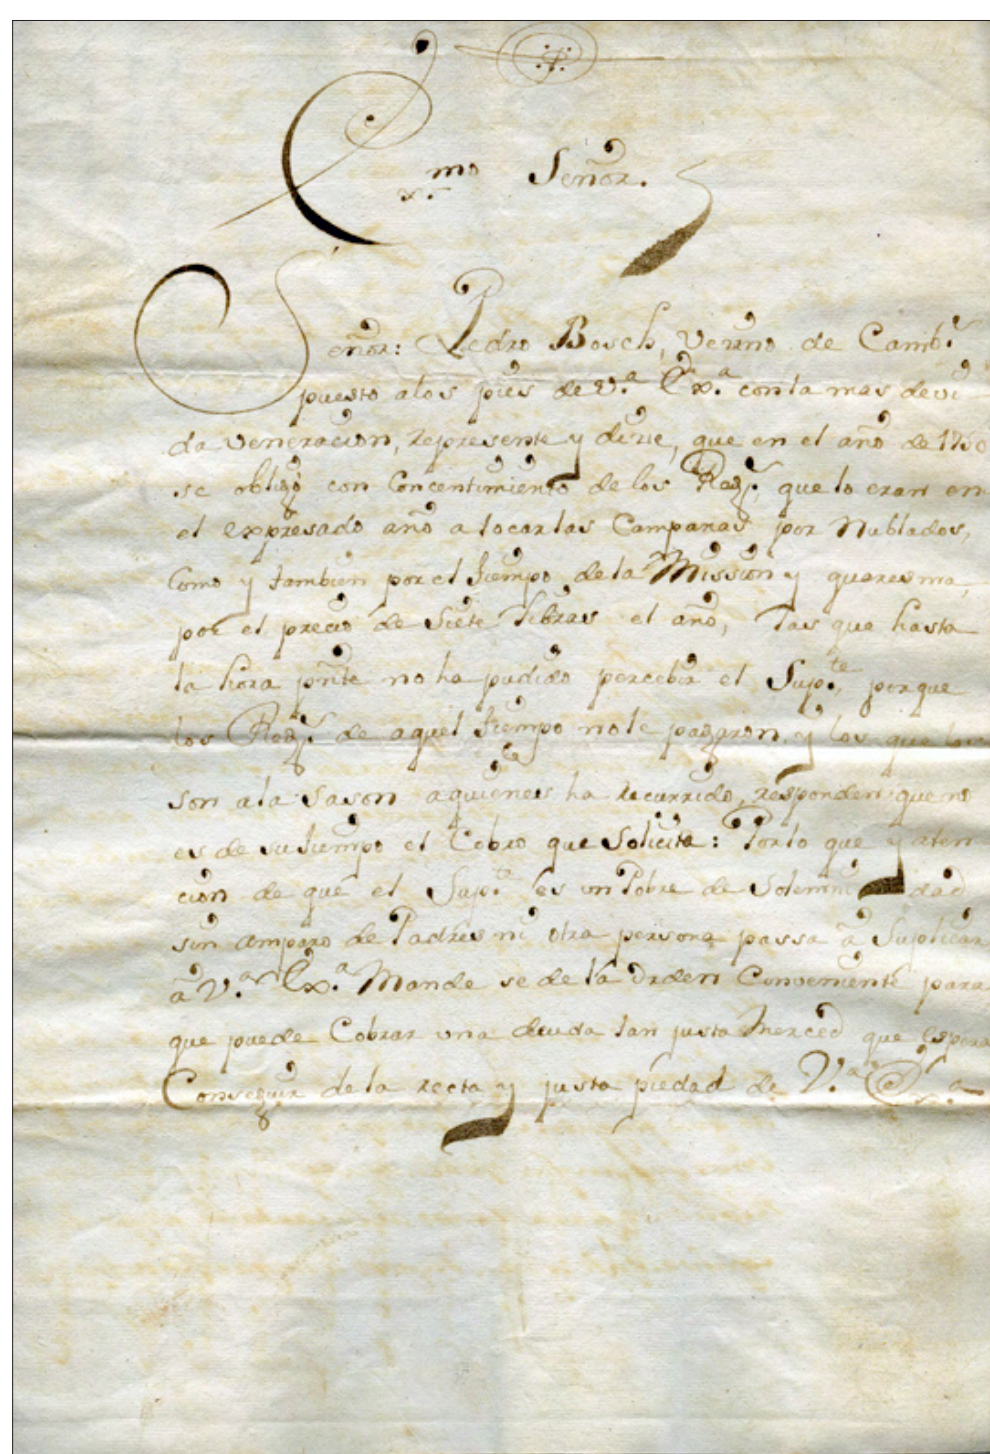 Exmo Señor.
Señor: Pedro Bosch, Vezino de Camb.s
puesto a los pies de V.a Ex.a con la mas devi
da veneracion, represente y dize, que en el año de 1750
se obligó con Concentimiento de los Reg.s, que lo eran en
el expresado año a tocar las Campanas por Nublados,
Como y tambien por el tiempo de la Mission y quaresma,
por el precio de Siete libras el año, las que hasta
la hora pñte no ha pudido percebir el Sup.te, porque
los Reg.s de aquel tiempo no le pagaron, y los que lo
son a la sason a quienes ha recurrido, responden que no
es de su tiempo el Cobro que Solicita: Porlo que y aten
cion de que el Sup.te es un Pobre de Solemni dad
sin Amparo de Padres ni otra persona passa â Suplicar
â V.a Ex.a Mande se de la Orden Conveniente para
que puede Cobrar una deuda tan justa Merced que espera
Conseguir de la recta y justa piedad de V.a Ex.a